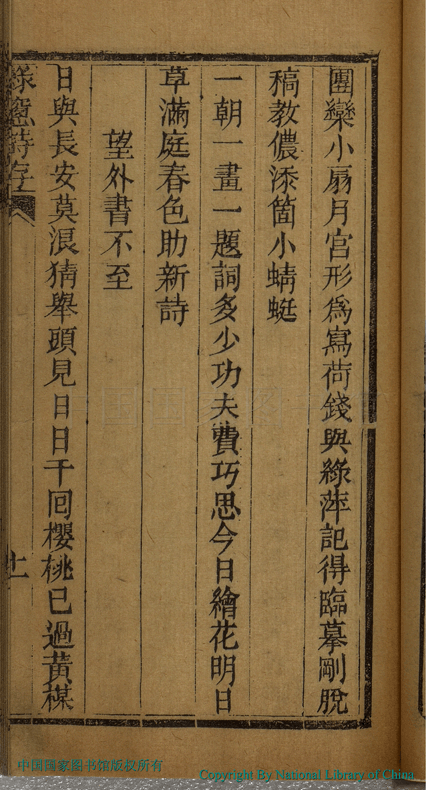 團欒小扇月宮形為寫荷錢與綠萍記得臨摹剛脫
稿教儂添箇小蜻蜓
一朝一畫一題詞多少功夫費巧思今日繪花明日
草滿庭春色助新詩
望外書不至
日與長安莫浪猜舉頭見日日千回櫻桃已過黃楳
綠窻詩存
十一
中国国家图书馆版权所有
Copyright By National Library of China